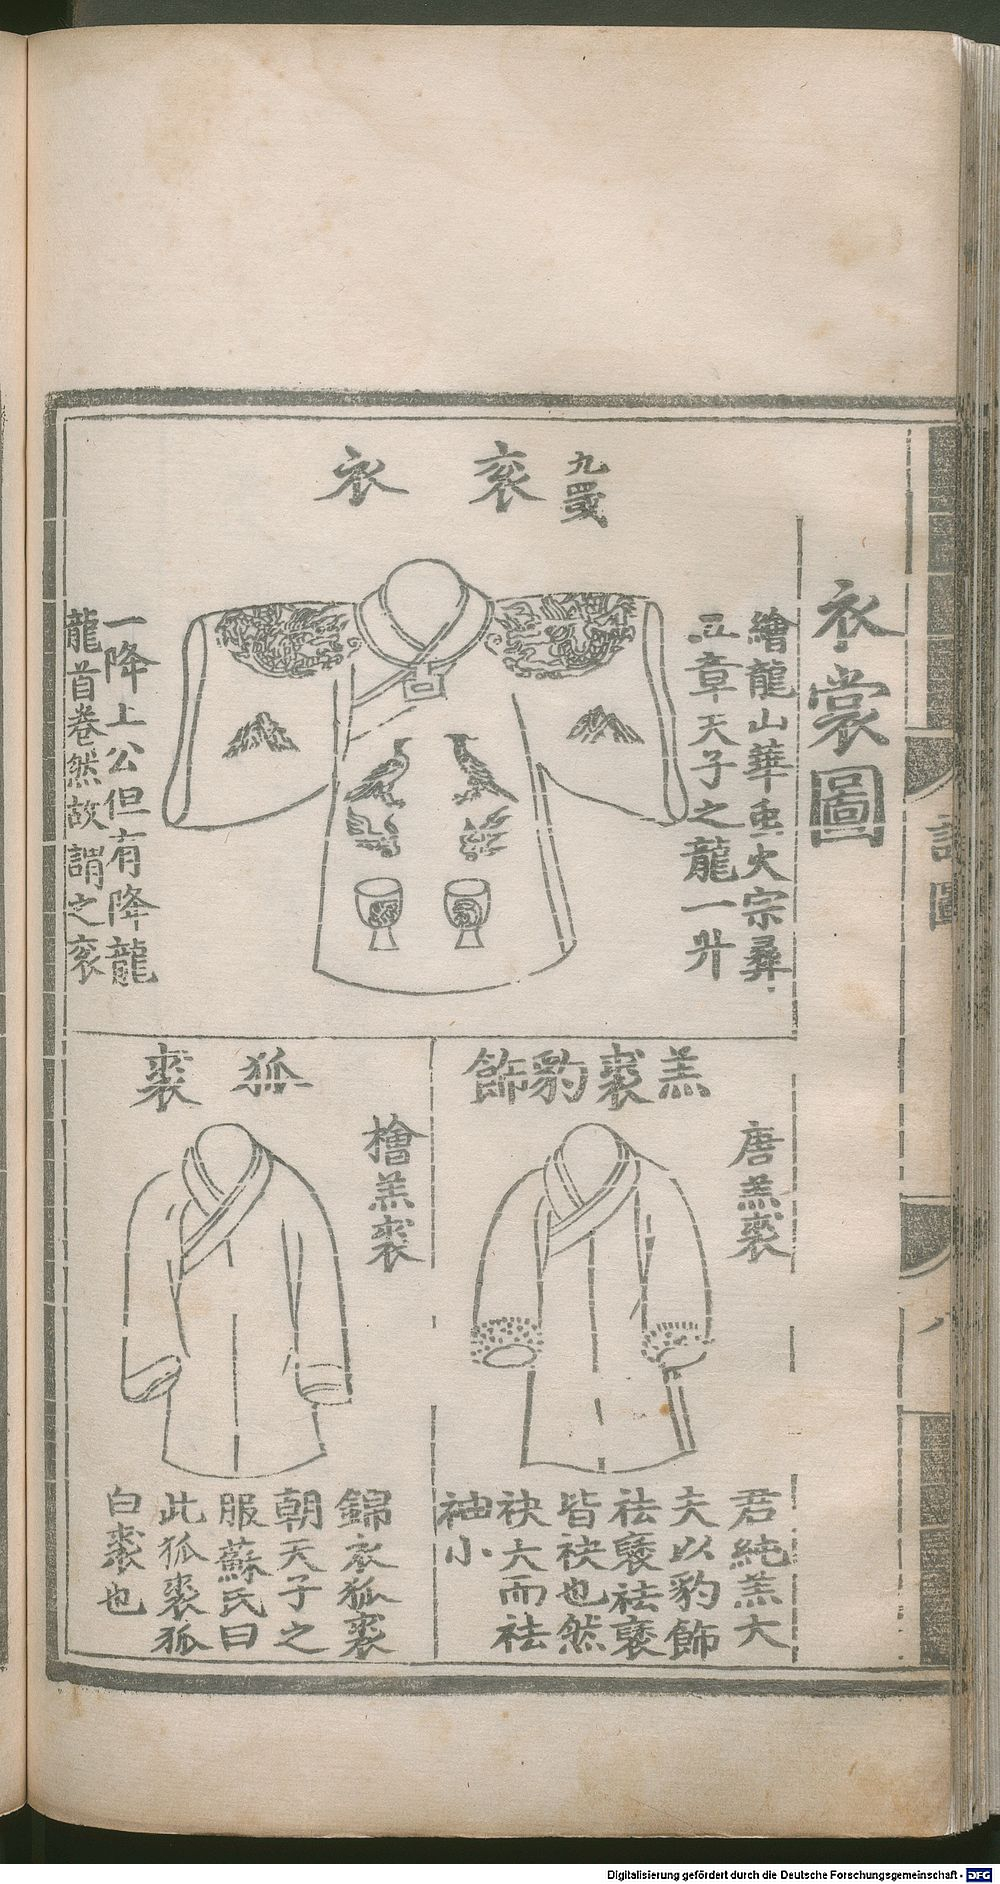 衣裳圖
九罭
袞衣
繪龍山華虫火宗彝
五章天子之龍一升
一降上公但有降龍
龍首卷然故謂之袞
羔裘豹飾
唐羔裘
君純羔大
夫以豹飾
袪褎袪褎
皆袂也然
袂大而袪
袖小
狐裘
檜羔裘
錦衣狐裘
朝天子之
服蘇氏曰
此狐裘狐
白裘也
圖
八
Digitalisierung gefördert durch die Deutsche Forschungsgemeinschaft - DFG